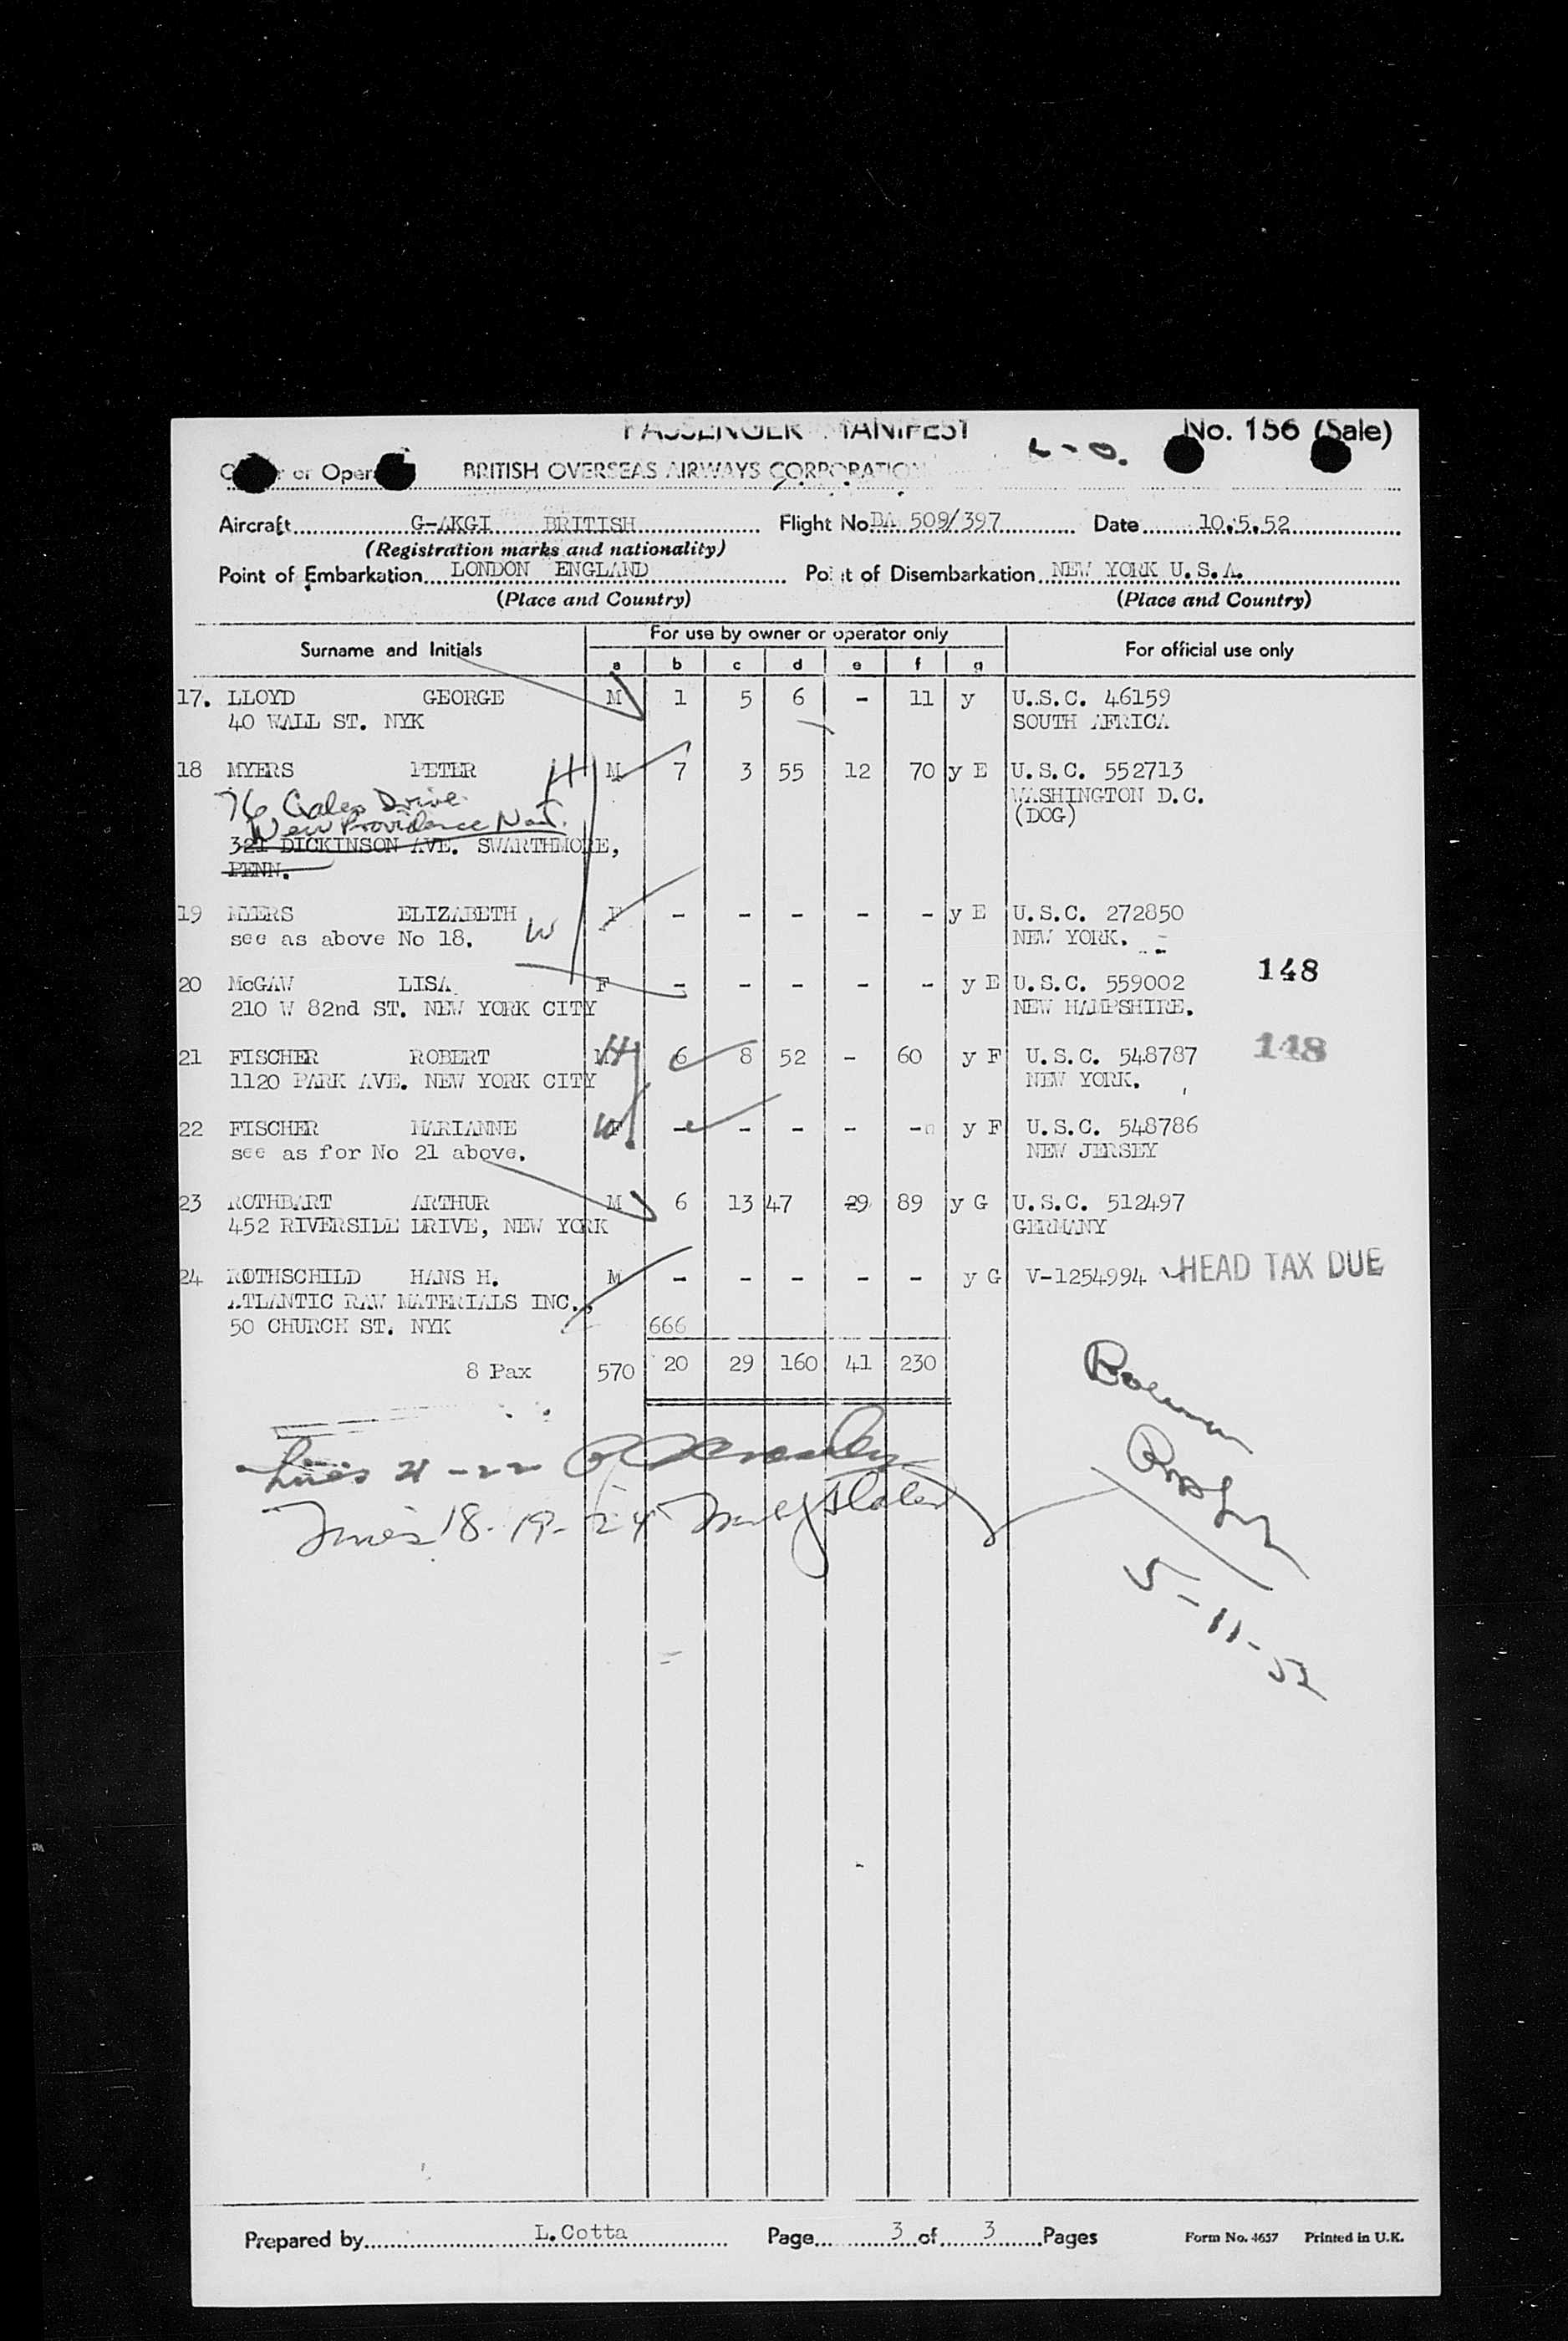 PASSENGER MANIFEST No. 156 (Sale)
L-O.
or Oper BRITISH OVERSEAS AIRWAYS CORPORATION
Aircraft G-AKGI BRITISH Flight No. BA 509/397 Date 10.5.52
(Registration marks and nationality)
Point of Embarkation LONDON ENGLAND Point of Disembarkation NEW YORK U.S.A.
(Place and Country) (Place and Country)
Surname and Initials For use by owner or operator only For official use only
a b c d e f g
17. LLOYD GEORGE M 1 5 6 - 11 y U.S.C. 46159
40 WALL ST. NYK SOUTH AFRICA
18 MYERS PETER H M 7 3 55 12 70 y E U.S.C. 552713
76 Gales Drive WASHINGTON D.C.
New Providence (DOG)
321 DICKINSON AVE. SWARTHMORE,
PENN.
19 MYERS ELIZABETH W F - - - - - y E U.S.C. 272850
see as above No 18. NEW YORK.
20 McGAW LISA F - - - - - y E U.S.C. 559002 148
210 W 82nd ST. NEW YORK CITY NEW HAMPSHIRE.
21 FISCHER ROBERT M H 6 8 52 - 60 y F U.S.C. 548787 148
1120 PARK AVE. NEW YORK CITY NEW YORK.
22 FISCHER MARIANNE F W - - - - - y F U.S.C. 548786
see as for No 21 above. NEW JERSEY
23 ROTHBART ARTHUR M 6 13 47 29 89 y G U.S.C. 512497
452 RIVERSIDE DRIVE, NEW YORK GERMANY
24 ROTHSCHILD HANS H. M - - - - - y G V-1254994 HEAD TAX DUE
ATLANTIC RAW MATERIALS INC.,
50 CHURCH ST. NYK 666
8 Pax 570 20 29 160 41 230
Lines 21-22
Lines 18-19-24
5-11-52
Prepared by L.Cotta Page 3 of 3 Pages Form No. 4657 Printed in U.K.